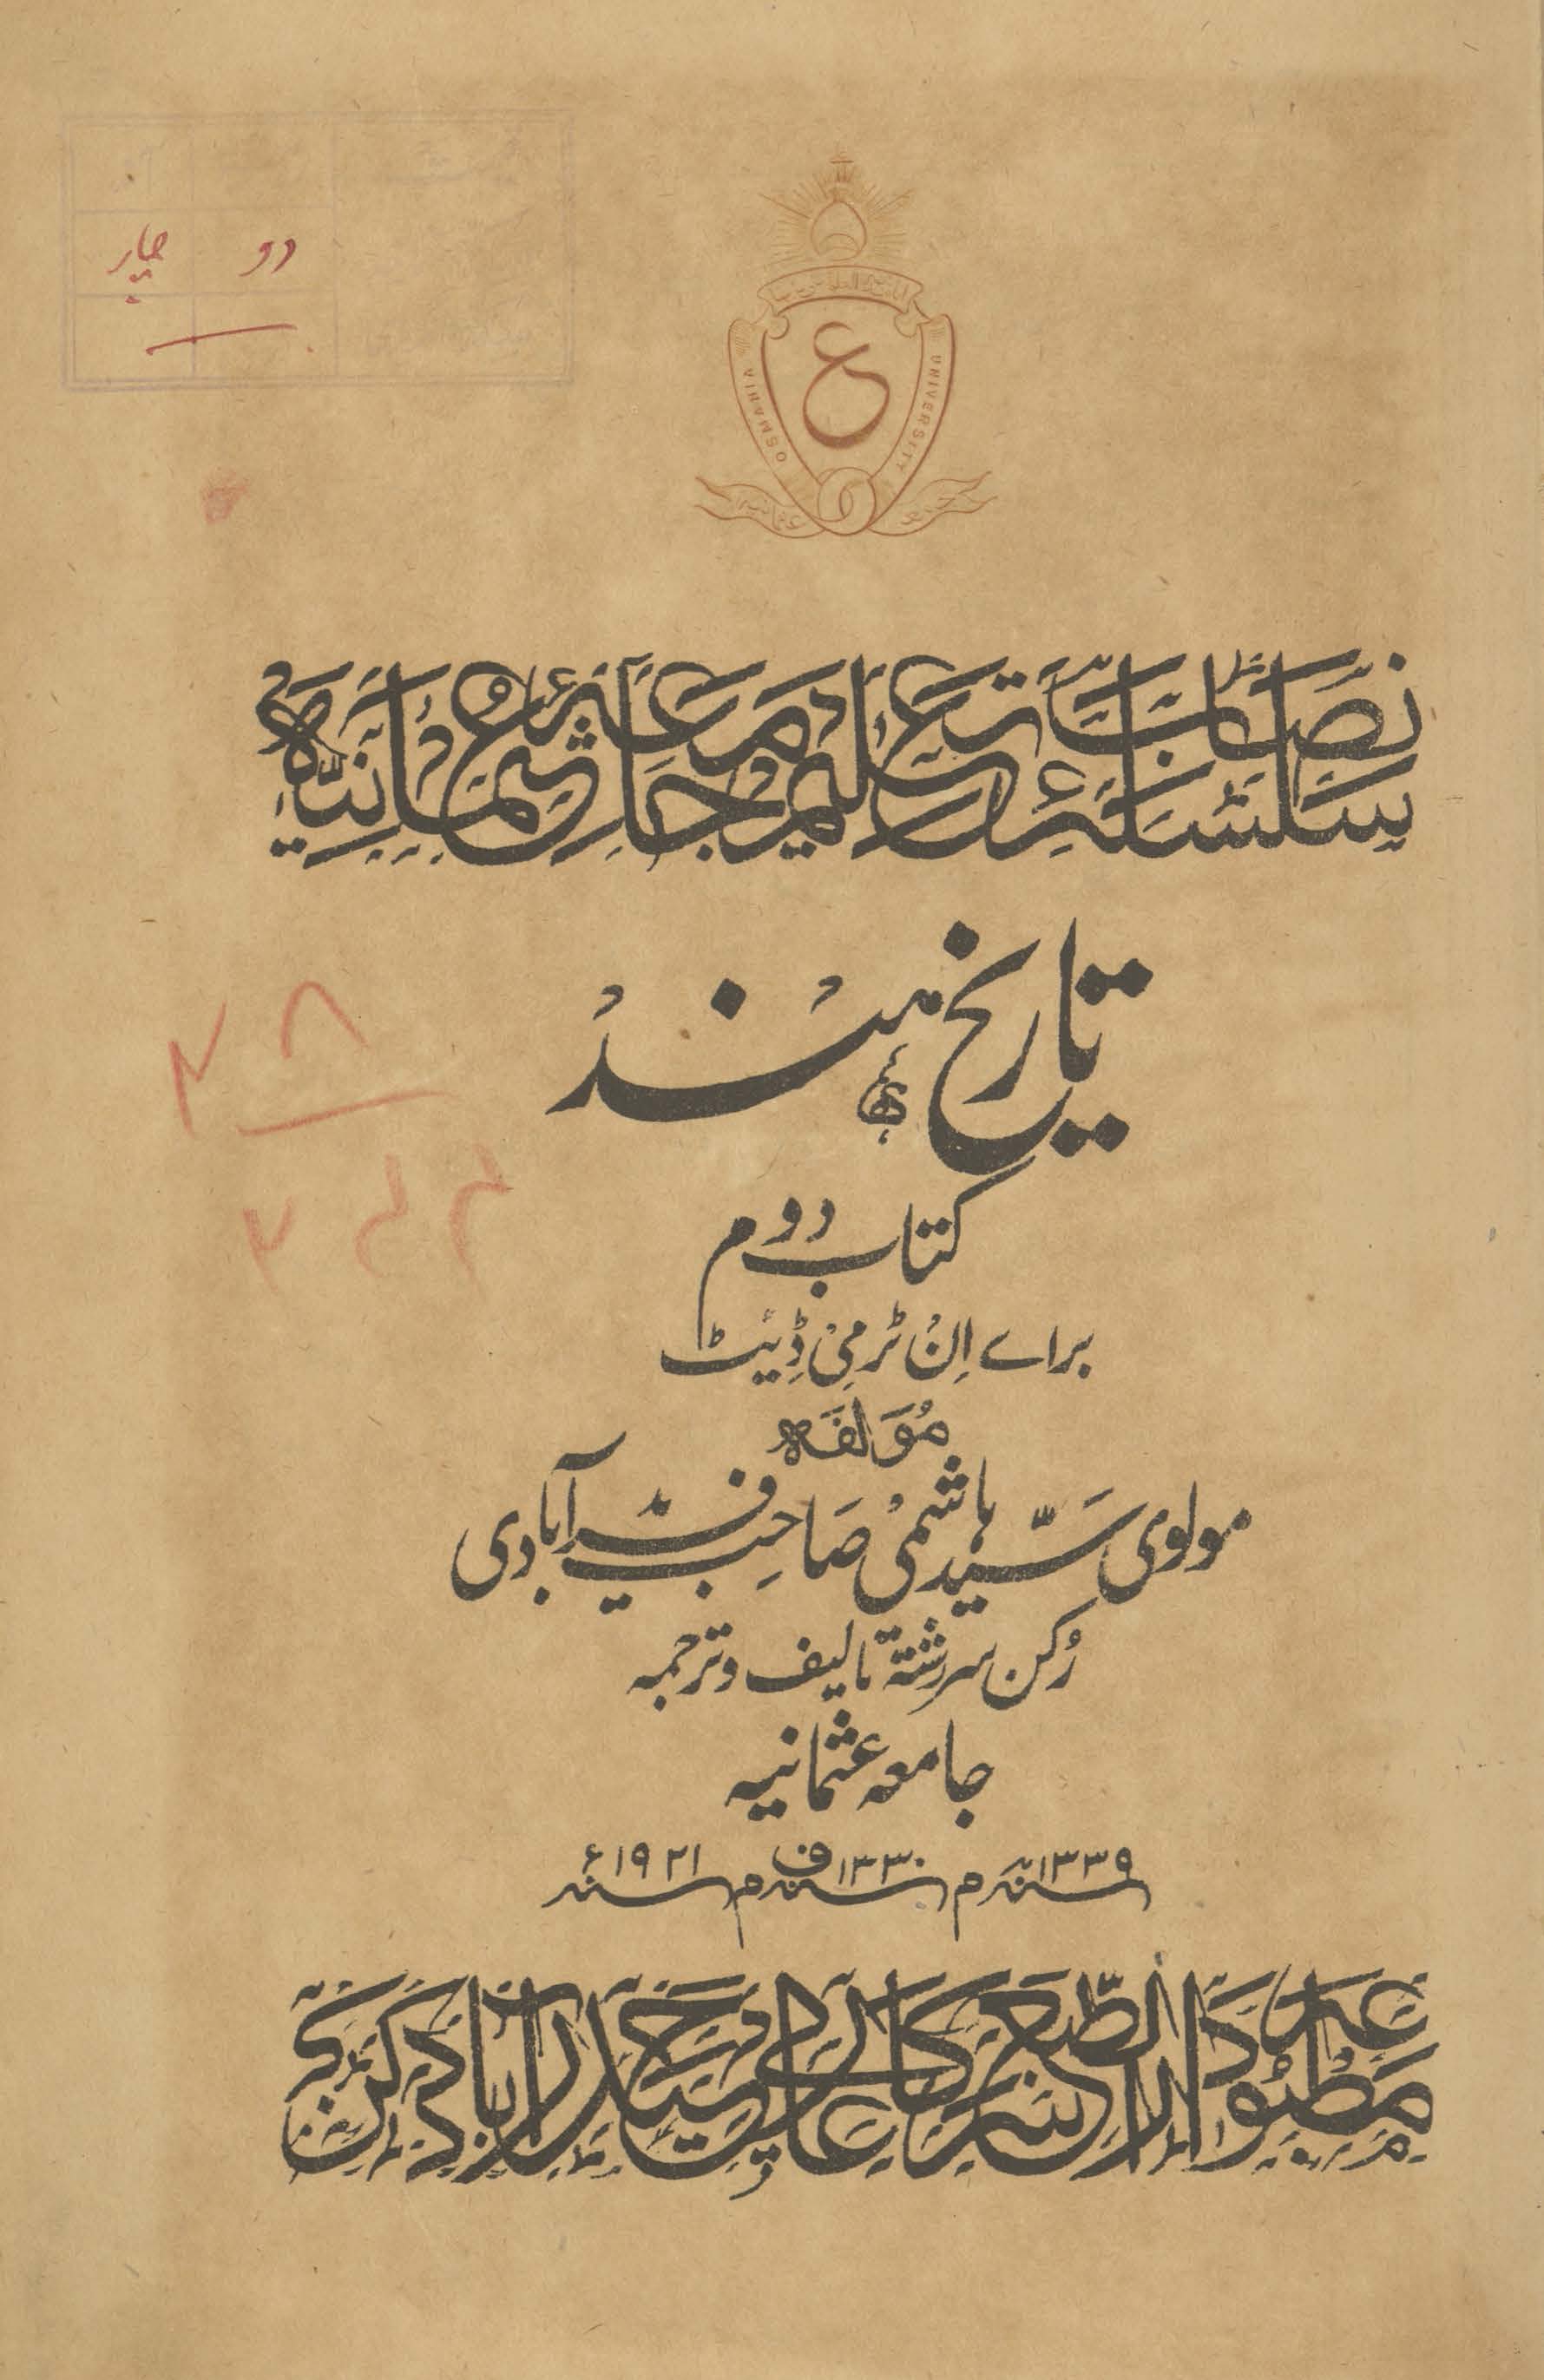 دو چار
OSMANIA UNIVERSITY
ع
سلسلۂ نصاب تعلیم جامعۂ عثمانیہ
تاریخ ہند
کتاب دوم
براے اِنْ ٹرمیْ ڈِیَٹ
مُؤلفہٗ
مولوی سیّد ہاشمی صاحب فریدآبادی
رُکن سررشتۂ تالیف و ترجمہ
جامعہ عثمانیہ
سنہ ۱۳۳۹ھ م سنہ ۱۳۳۰ف م سنہ ۱۹۲۱ء
مطبوعہ دارالطبع سرکار عالی حیدرآباد دکن